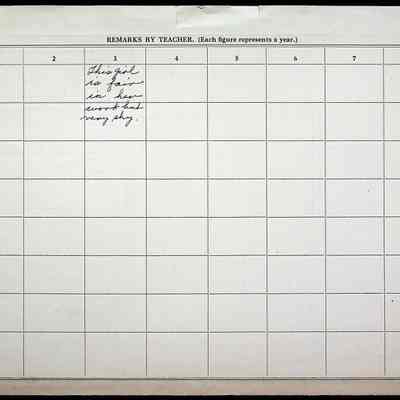 REMARKS BY TEACHER. (Each figure represents a year.)
2 3 4 5 6 7
This girl
is fair
in her
work but
very shy.